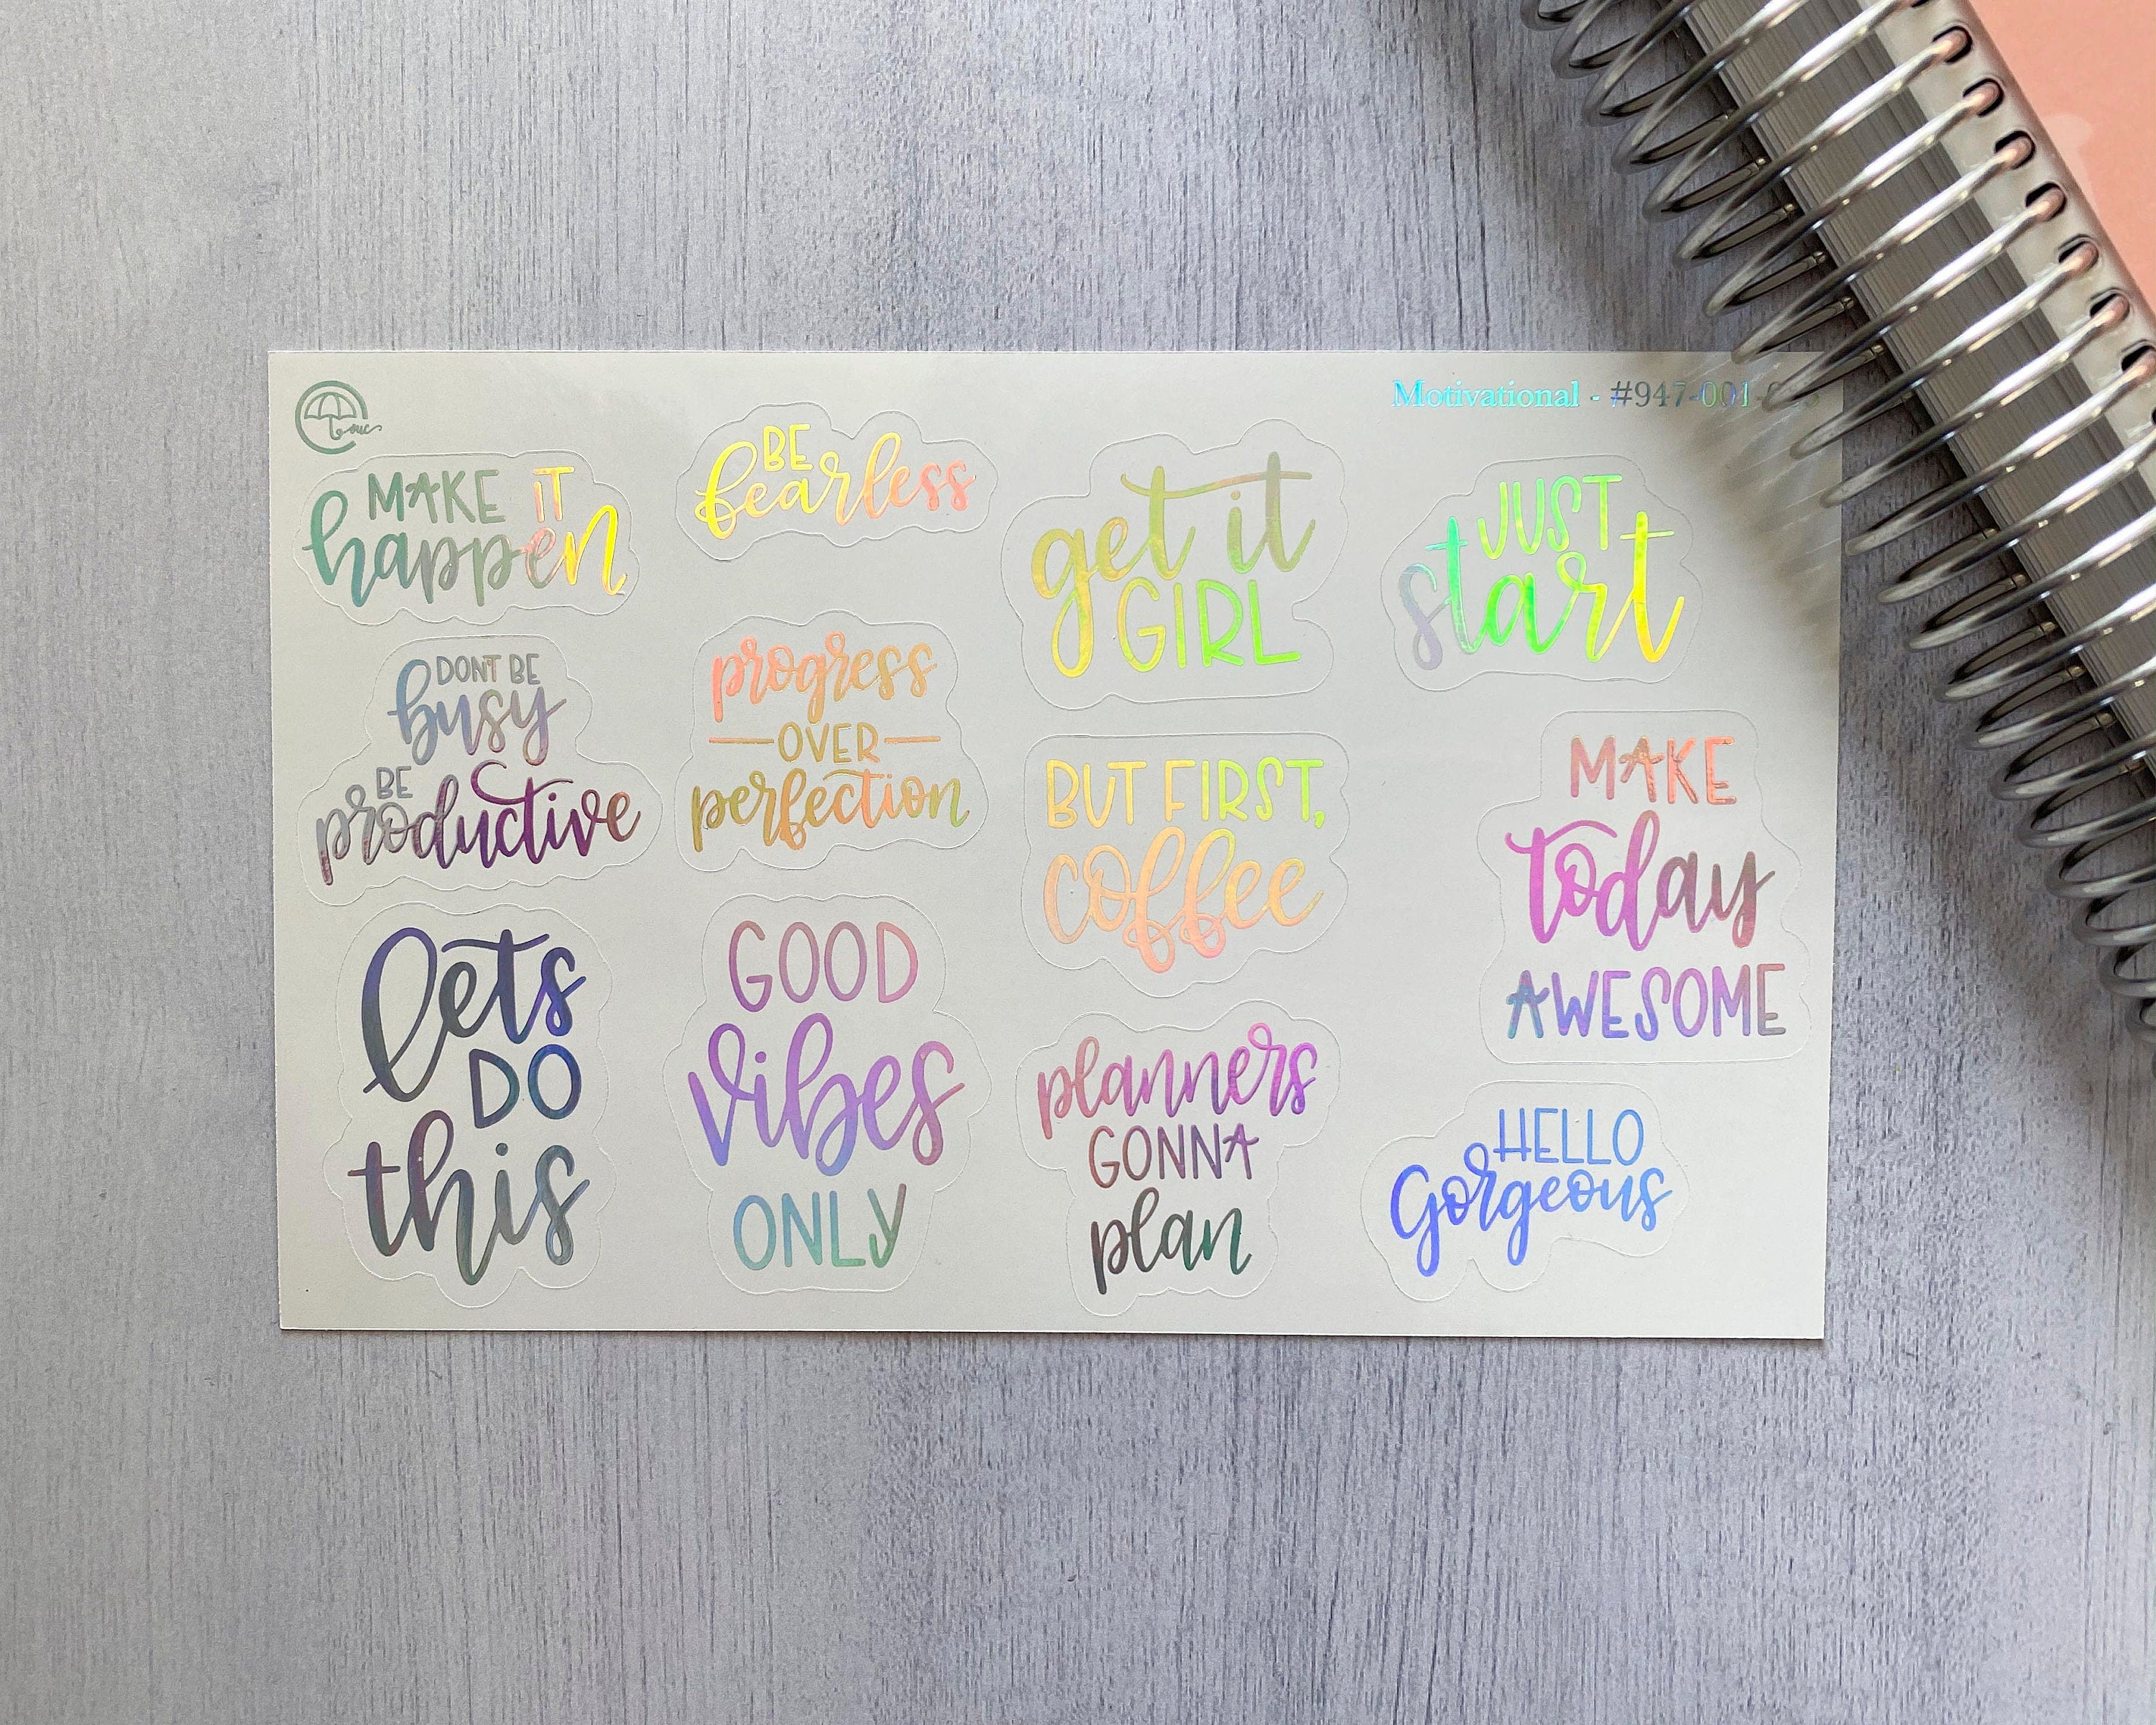 Motivational - #947-001-
MAKE IT
happen
BE
fearless
get it
GIRL
JUST
start
DONT BE
busy
BE
productive
progress
OVER
perfection
BUT FIRST,
coffee
MAKE
today
AWESOME
lets
DO
this
GOOD
vibes
ONLY
planners
GONNA
plan
HELLO
Gorgeous